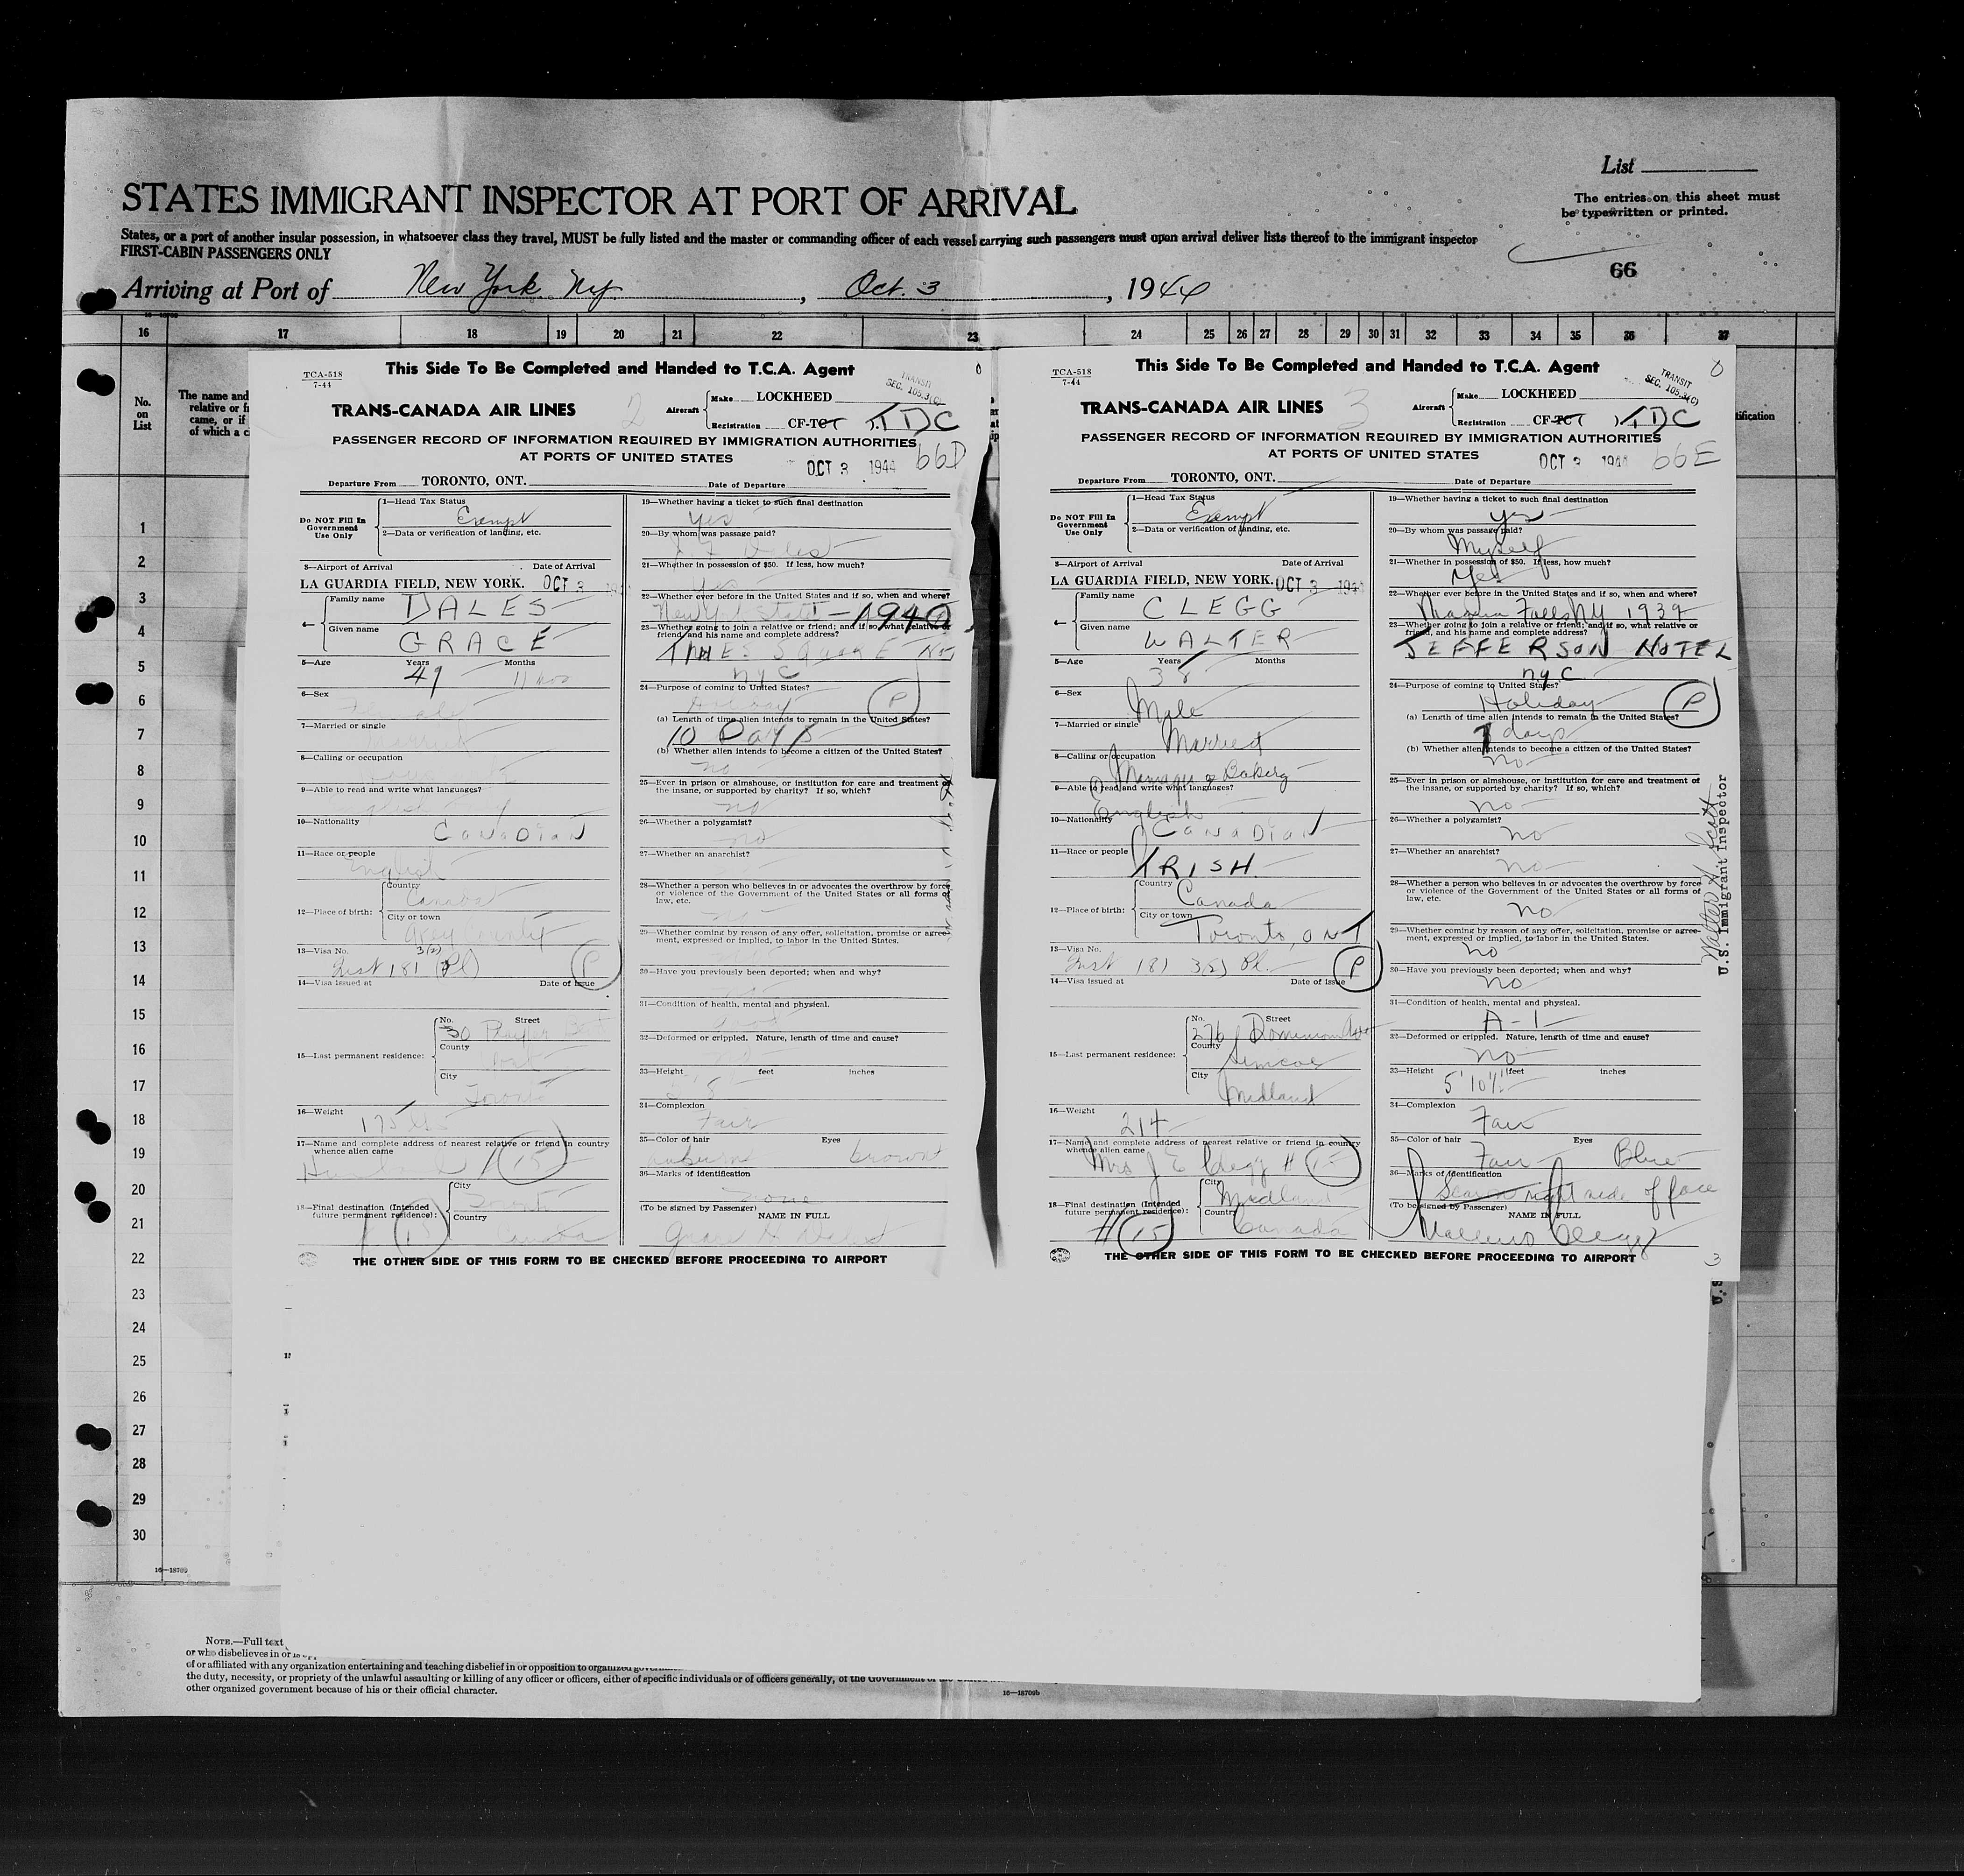 List
STATES IMMIGRANT INSPECTOR AT PORT OF ARRIVAL
The entries on this sheet must
be typewritten or printed.
States, or a port of another insular possession, in whatsoever class they travel, MUST be fully listed and the master or commanding officer of each vessel carrying such passengers must upon arrival deliver lists thereof to the immigrant inspector
FIRST-CABIN PASSENGERS ONLY
66
Arriving at Port of New York Ny, Oct. 3, 1944
16 17 18 19 20 21 22 23 24 25 26 27 28 29 30 31 32 33 34 35 36 37
No.
on
List
The name and
relative or
came, or if
of which a
1
2
3
4
5
6
7
8
9
10
11
12
13
14
15
16
17
18
19
20
21
22
23
24
25
26
27
28
29
30
16—18709
This Side To Be Completed and Handed to T.C.A. Agent
TCA-518
7-44
TRANSIT
SEC. 105.3(C)
TRANS-CANADA AIR LINES 2
Aircraft Make LOCKHEED
Registration CF-TCT TDC
PASSENGER RECORD OF INFORMATION REQUIRED BY IMMIGRATION AUTHORITIES
AT PORTS OF UNITED STATES
OCT 3 1944 66D
Departure From TORONTO, ONT. Date of Departure
Do NOT Fill In
Government
Use Only
1—Head Tax Status
Exempt
2—Data or verification of landing, etc.
3—Airport of Arrival Date of Arrival
LA GUARDIA FIELD, NEW YORK. OCT 3 194
4— Family name DALES
Given name GRACE
5—Age Years Months
49 11 mos
6—Sex
7—Married or single
8—Calling or occupation
9—Able to read and write what languages?
10—Nationality
CANADIAN
11—Race or people
English
12—Place of birth: Country
Canada
City or town
Grey County
13—Visa No. 3(2)
Inst 181 (Pl) P
14—Visa issued at Date of issue
15—Last permanent residence: No. Street
30
County
York
City
Toronto
16—Weight
175 lbs
17—Name and complete address of nearest relative or friend in country
whence alien came
15
18—Final destination (Intended
future permanent residence): City
Toronto
Country
Canada
19—Whether having a ticket to such final destination
Yes
20—By whom was passage paid?
Dales
21—Whether in possession of $50. If less, how much?
Yes
22—Whether ever before in the United States and if so, when and where?
New York State — 1940
23—Whether going to join a relative or friend; and if so, what relative or
friend, and his name and complete address?
TIMES SQUARE
NYC
24—Purpose of coming to United States?
P
(a) Length of time alien intends to remain in the United States?
10 Days
(b) Whether alien intends to become a citizen of the United States?
no
25—Ever in prison or almshouse, or institution for care and treatment of
the insane, or supported by charity? If so, which?
no
26—Whether a polygamist?
no
27—Whether an anarchist?
28—Whether a person who believes in or advocates the overthrow by force
or violence of the Government of the United States or all forms of
law, etc.
no
29—Whether coming by reason of any offer, solicitation, promise or agree-
ment, expressed or implied, to labor in the United States.
30—Have you previously been deported; when and why?
31—Condition of health, mental and physical.
32—Deformed or crippled. Nature, length of time and cause?
33—Height feet inches
34—Complexion
Fair
35—Color of hair Eyes
auburn brown
36—Marks of identification
none
(To be signed by Passenger)
NAME IN FULL
Grace
THE OTHER SIDE OF THIS FORM TO BE CHECKED BEFORE PROCEEDING TO AIRPORT
This Side To Be Completed and Handed to T.C.A. Agent
TCA-518
7-44
TRANSIT
SEC. 105.3(C)
TRANS-CANADA AIR LINES 3
Aircraft Make LOCKHEED
Registration CF-TCT TDC
PASSENGER RECORD OF INFORMATION REQUIRED BY IMMIGRATION AUTHORITIES
AT PORTS OF UNITED STATES
OCT 3 1944 66E
Departure From TORONTO, ONT. Date of Departure
Do NOT Fill In
Government
Use Only
1—Head Tax Status
Exempt
2—Data or verification of landing, etc.
3—Airport of Arrival Date of Arrival
LA GUARDIA FIELD, NEW YORK. OCT 3 194
4— Family name CLEGG
Given name WALTER
5—Age Years Months
38
6—Sex
Male
7—Married or single
Married
8—Calling or occupation
Manager of Bakery
9—Able to read and write what languages?
English
10—Nationality
CANADIAN
11—Race or people
IRISH
12—Place of birth: Country
Canada
City or town
Toronto, ONT
13—Visa No.
Inst 181 3(2) Pl. P
14—Visa issued at Date of issue
15—Last permanent residence: No. Street
276 Dominion Ave
County
Simcoe
City
Midland
16—Weight
214
17—Name and complete address of nearest relative or friend in country
whence alien came
Mrs J E Clegg # 15
18—Final destination (Intended
future permanent residence): City
Midland
# 15
Country
Canada
19—Whether having a ticket to such final destination
yes
20—By whom was passage paid?
Myself
21—Whether in possession of $50. If less, how much?
Yes
22—Whether ever before in the United States and if so, when and where?
Niagara Falls NY 1939
23—Whether going to join a relative or friend; and if so, what relative or
friend, and his name and complete address?
JEFFERSON HOTEL
nyc
24—Purpose of coming to United States?
Holiday P
(a) Length of time alien intends to remain in the United States?
7 days
(b) Whether alien intends to become a citizen of the United States?
no
25—Ever in prison or almshouse, or institution for care and treatment of
the insane, or supported by charity? If so, which?
no
26—Whether a polygamist?
no
27—Whether an anarchist?
no
28—Whether a person who believes in or advocates the overthrow by force
or violence of the Government of the United States or all forms of
law, etc.
no
29—Whether coming by reason of any offer, solicitation, promise or agree-
ment, expressed or implied, to labor in the United States.
no
30—Have you previously been deported; when and why?
no
31—Condition of health, mental and physical.
A-1
32—Deformed or crippled. Nature, length of time and cause?
no
33—Height feet inches
5' 10½"
34—Complexion
Fair
35—Color of hair Eyes
Fair Blue
36—Marks of identification
Scar on right side of face
(To be signed by Passenger)
NAME IN FULL
Clegg
THE OTHER SIDE OF THIS FORM TO BE CHECKED BEFORE PROCEEDING TO AIRPORT
Walter Scott
U.S. Immigrant Inspector
NOTE.—Full text
or who disbelieves in or is
of or affiliated with any organization entertaining and teaching disbelief in or opposition to organized
the duty, necessity, or propriety of the unlawful assaulting or killing of any officer or officers, either of specific individuals or of officers generally, of the Government of
other organized government because of his or their official character.
16—18709b